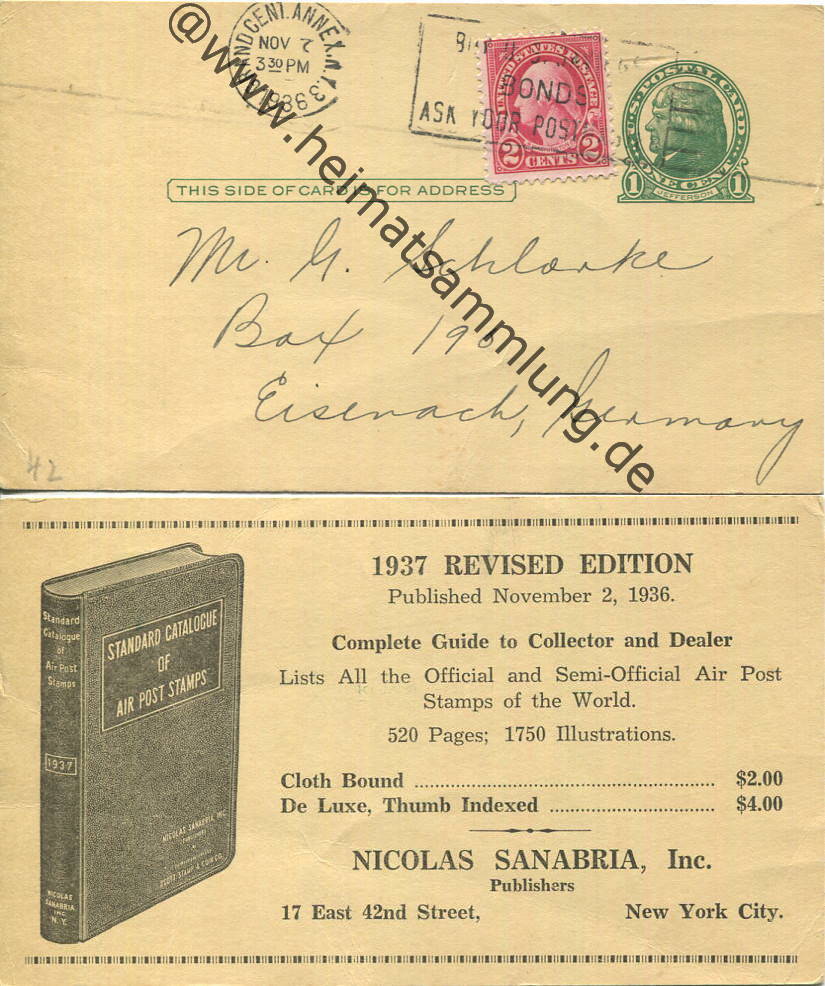 GRAND CENT. ANNEX. N.Y. 3
NOV 7
3 30 PM
1936
BONDS
ASK YOUR POST
UNITED STATES POSTAGE
2 CENTS 2
U.S. POSTAL CARD
1 ONE CENT 1
JEFFERSON
THIS SIDE OF CARD IS FOR ADDRESS
Mr. G. Schlorke
Box 196
Eisenach, Germany
42
@www.heimatsammlung.de
Standard
Catalogue
of
Air Post
Stamps
1937
NICOLAS
SANABRIA
INC.
N.Y.
STANDARD CATALOGUE
OF
AIR POST STAMPS
NICOLAS SANABRIA, INC.
PUBLISHERS
SCOTT STAMP & COIN CO.
1937 REVISED EDITION
Published November 2, 1936.
Complete Guide to Collector and Dealer
Lists All the Official and Semi-Official Air Post
Stamps of the World.
520 Pages; 1750 Illustrations.
Cloth Bound ........................ $2.00
De Luxe, Thumb Indexed ............ $4.00
NICOLAS SANABRIA, Inc.
Publishers
17 East 42nd Street, New York City.